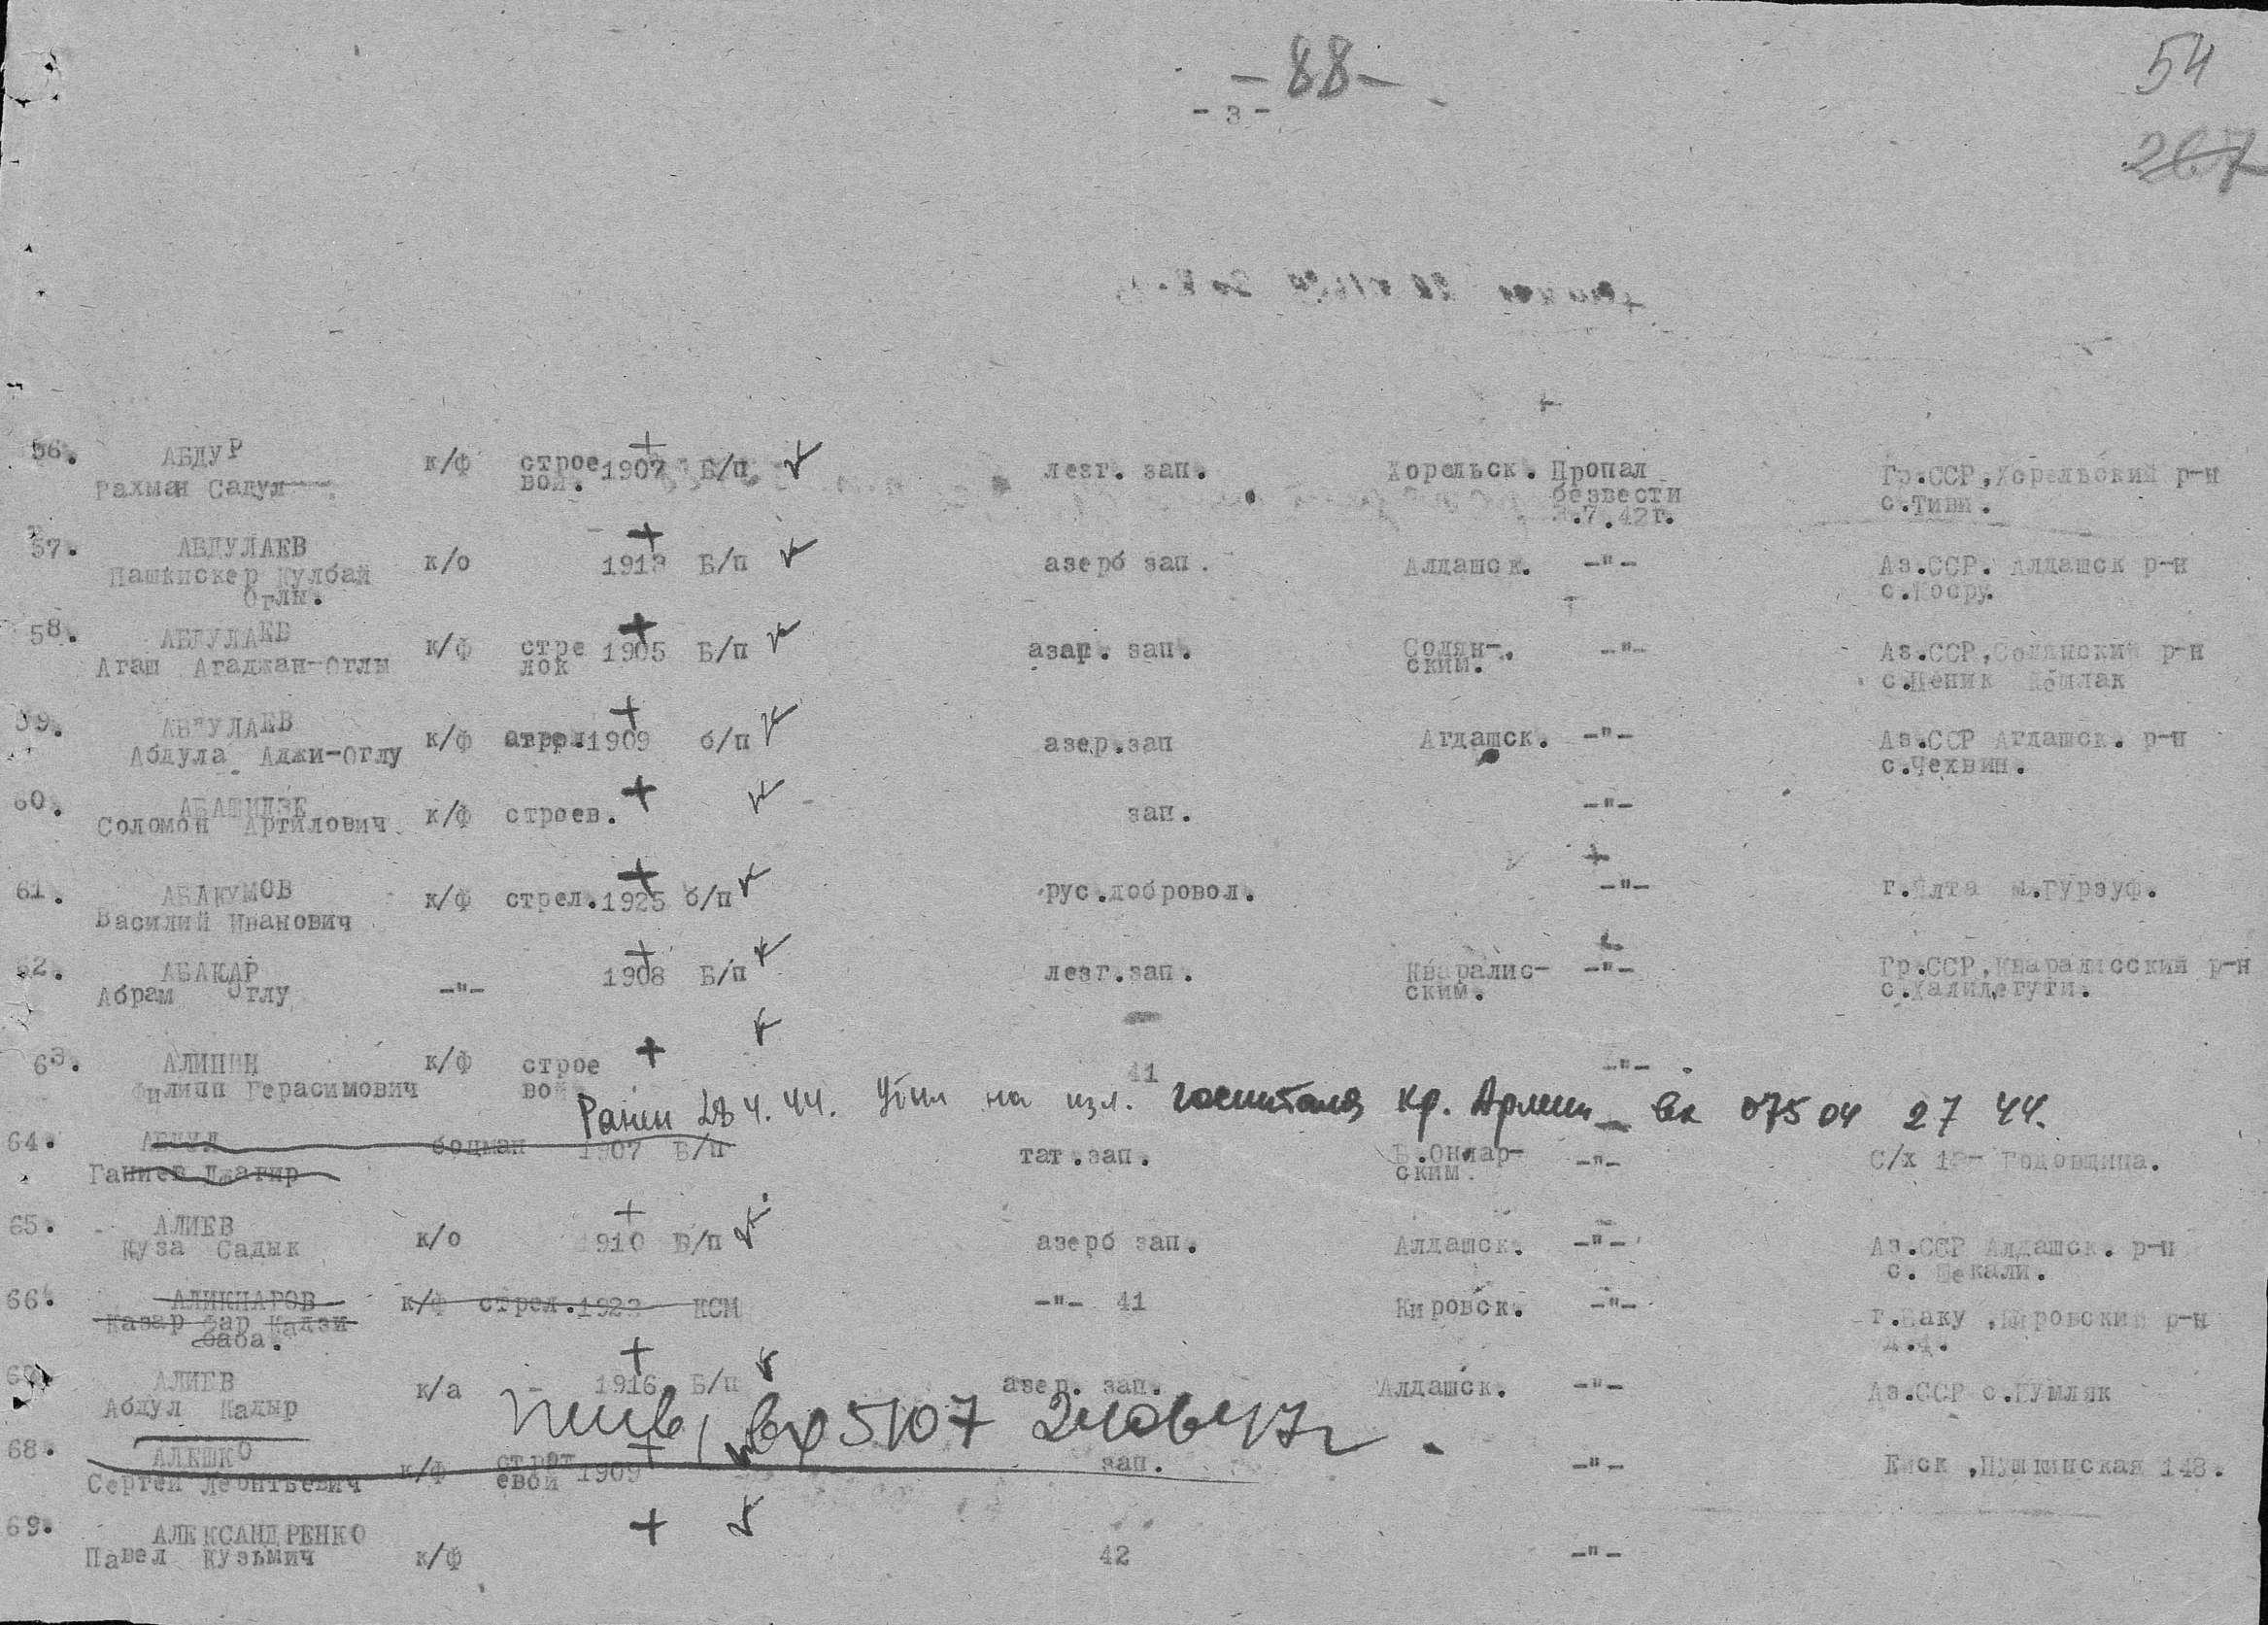 -88-
- 3 -
54
267
56. АБДУР к/ф строе 1907 Б/п лезг. зап. Хорельск. Пропал Гр.ССР, Хорельский р-н
Рахман Садул вой. безвести с.Тиви.
3.7.42г.
57. АБДУЛАЕВ к/о 1913 Б/п азерб зап. Алдашск. -"- Аз.ССР. Алдашск р-н
Пашкискер Кулбай с.Косру.
Оглы.
58. АБДУЛАЕВ к/ф стре 1905 Б/п азар. зап. Солян-. -"- Аз.ССР, Солянский р-н
Агаш Агаджан-Оглы лок ским.
59. АБДУЛАЕВ к/ф стрел 1909 б/п азер.зап Агдашск. -"- Аз.ССР Агдашск. р-н
Абдула Аджи-Оглу с.Чехвин.
60. АБАШИДЗЕ к/ф строев. зап. -"-
Соломон Артилович
61. АБАКУМОВ к/ф стрел. 1925 б/п рус.добровол. -"- г.Ялта м.Гурзуф.
Василий Иванович
62. АБАКАР -"- 1908 Б/п лезг.зап. Кваралис- -"- Гр.ССР, Кваралисский р-н
Абрам Оглу ским.
63. АЛИПИН к/ф строе 41 -"-
Филипп Герасимович вой
Ранен 28 4.44. Убыл на изл. госпиталя Кр. Армии вх 07504 27 44.
64. АБДУЛ боцман 1907 Б/п тат.зап. -"- С/х 13- Годовщина.
Ганиев Джагир ским.
65. АЛИЕВ к/о 1910 Б/п азерб зап. Алдашск. -"- Аз.ССР Алдашск. р-н
Куза Садык с. Шекали.
66. АЛИКПАРОВ к/ф стрел. 1923 КСМ -"- 41 Кировск. -"- г.Баку, Кировский р-н
баба.
АЛИЕВ к/а - 1916 Б/п азер. зап. Алдашск. -"- Аз.ССР с.Гумляк
Абдул Шадыр
жив, вх 5107 47г.
68. АЛЕШКО к/ф строт 1909 зап. -"- Ейск, Пушкинская 148.
Сергей Леонтьевич евой
69. АЛЕКСАНДРЕНКО
Павел Кузьмич к/ф 42 -"-